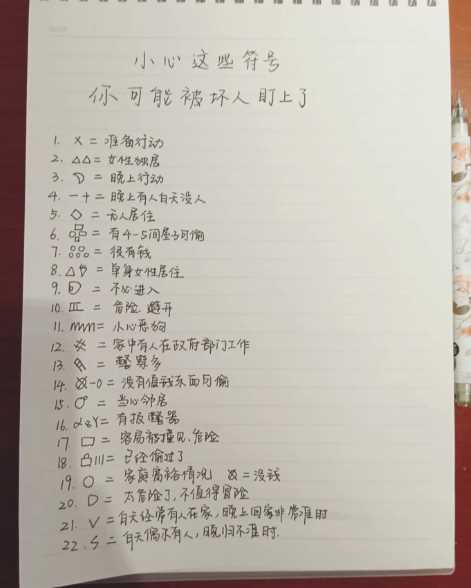 小心这些符号
你可能被坏人盯上了
1. × = 准备行动
2. △△ = 女性独居
3. = 晚上行动
4. - + = 晚上有人白天没人
5. ◇ = 无人居住
6. = 有4-5间屋子可偷
7. = 很有钱
8. △ = 单身女性居住
9. = 不必进入
10. = 危险.避开
11. = 小心恶狗
12. = 家中有人在政府部门工作
13. = 警察多
14. -0 = 没有值钱东西可偷
15. = 当心邻居
16. = 有报警器
17 □ = 容易被撞见.危险
18. = 已经偷过了
19. ○ = 家庭富裕情况 = 没钱
20. D = 太冒险了,不值得冒险
21. V = 白天经常有人在家,晚上回家非常准时
22. S = 白天偶尔有人,晚归不准时.